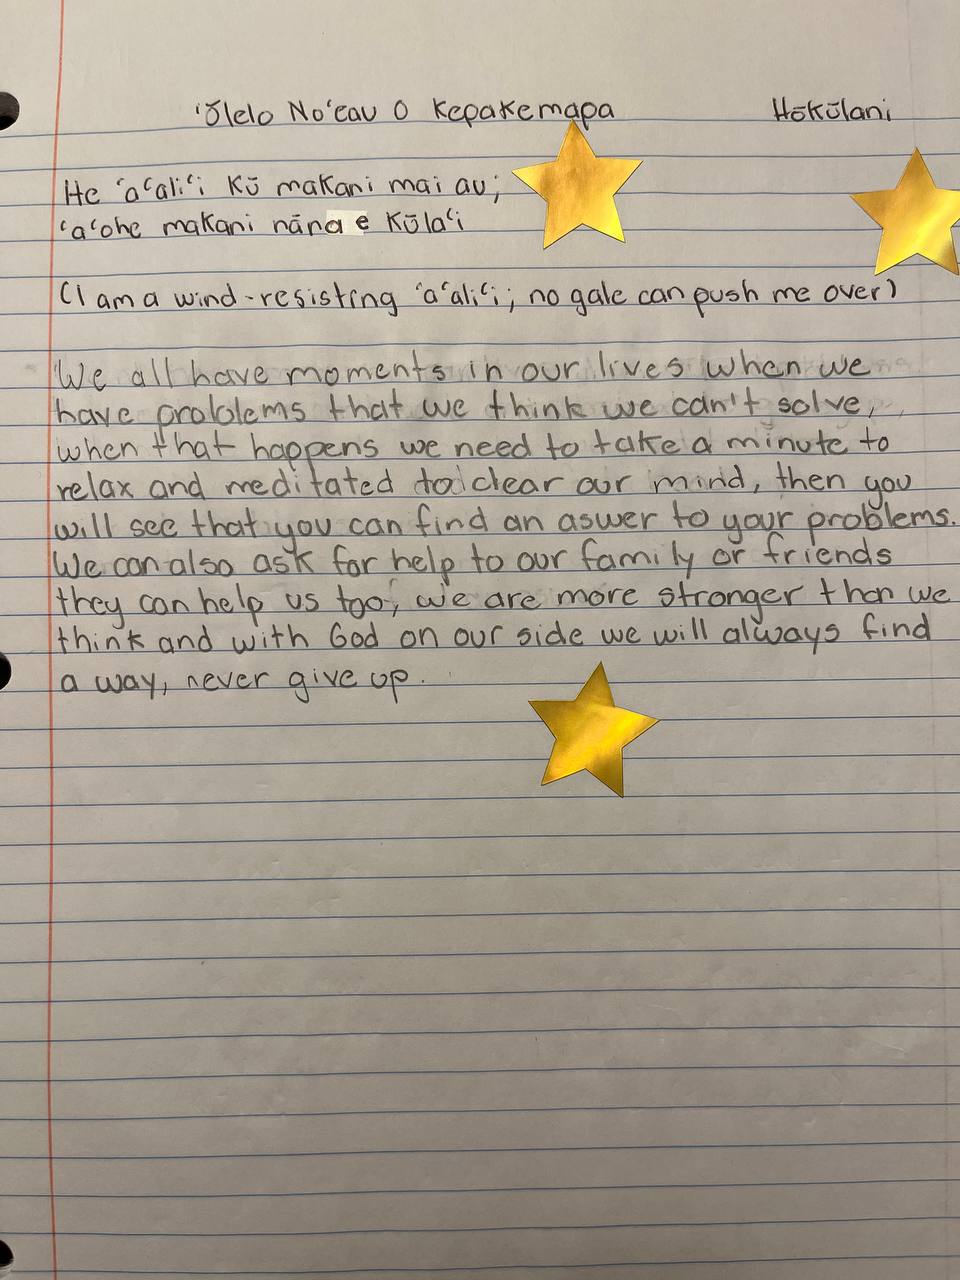 ʻŌlelo Noʻeau O Kepakemapa Hōkūlani
He ʻaʻaliʻi Kū makani mai au;
ʻaʻohe makani nāna e Kūlaʻi
(I am a wind-resisting ʻaʻaliʻi; no gale can push me over)
We all have moments in our lives when we
have problems that we think we can't solve,
when that happens we need to take a minute to
relax and meditated to clear our mind, then you
will see that you can find an aswer to your problems.
We can also ask for help to our family or friends
they can help us too, we are more stronger than we
think and with God on our side we will always find
a way, never give up.